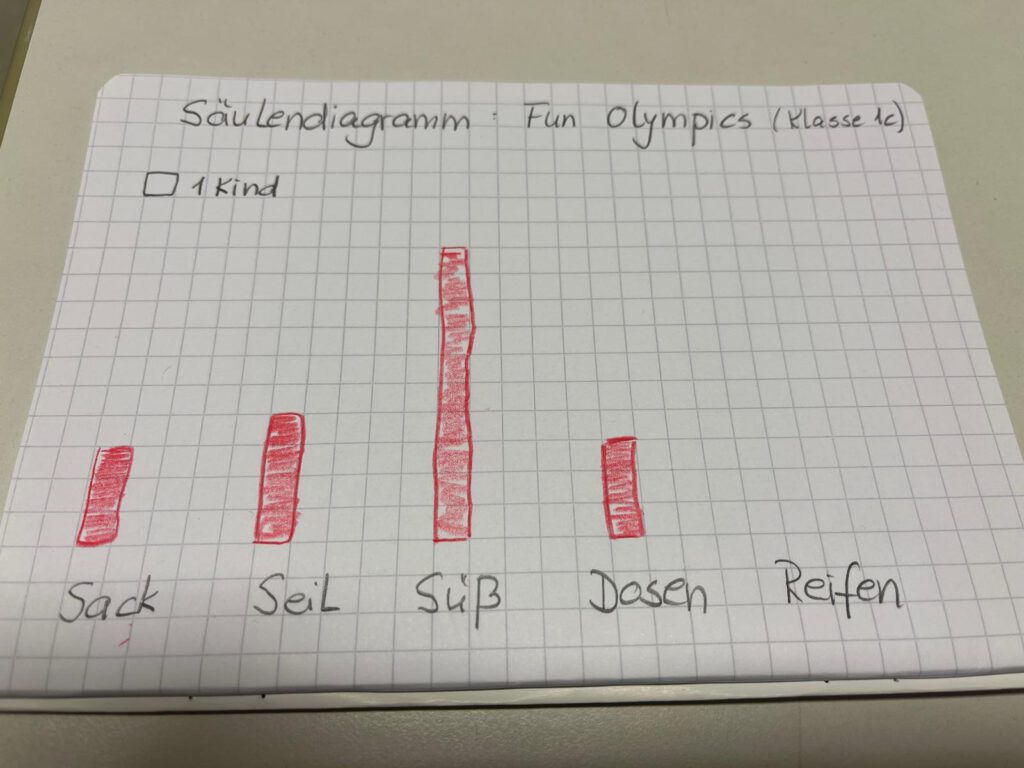 Säulendiagramm : Fun Olympics (Klasse 1c)
1 Kind
Sack Seil Süß Dosen Reifen